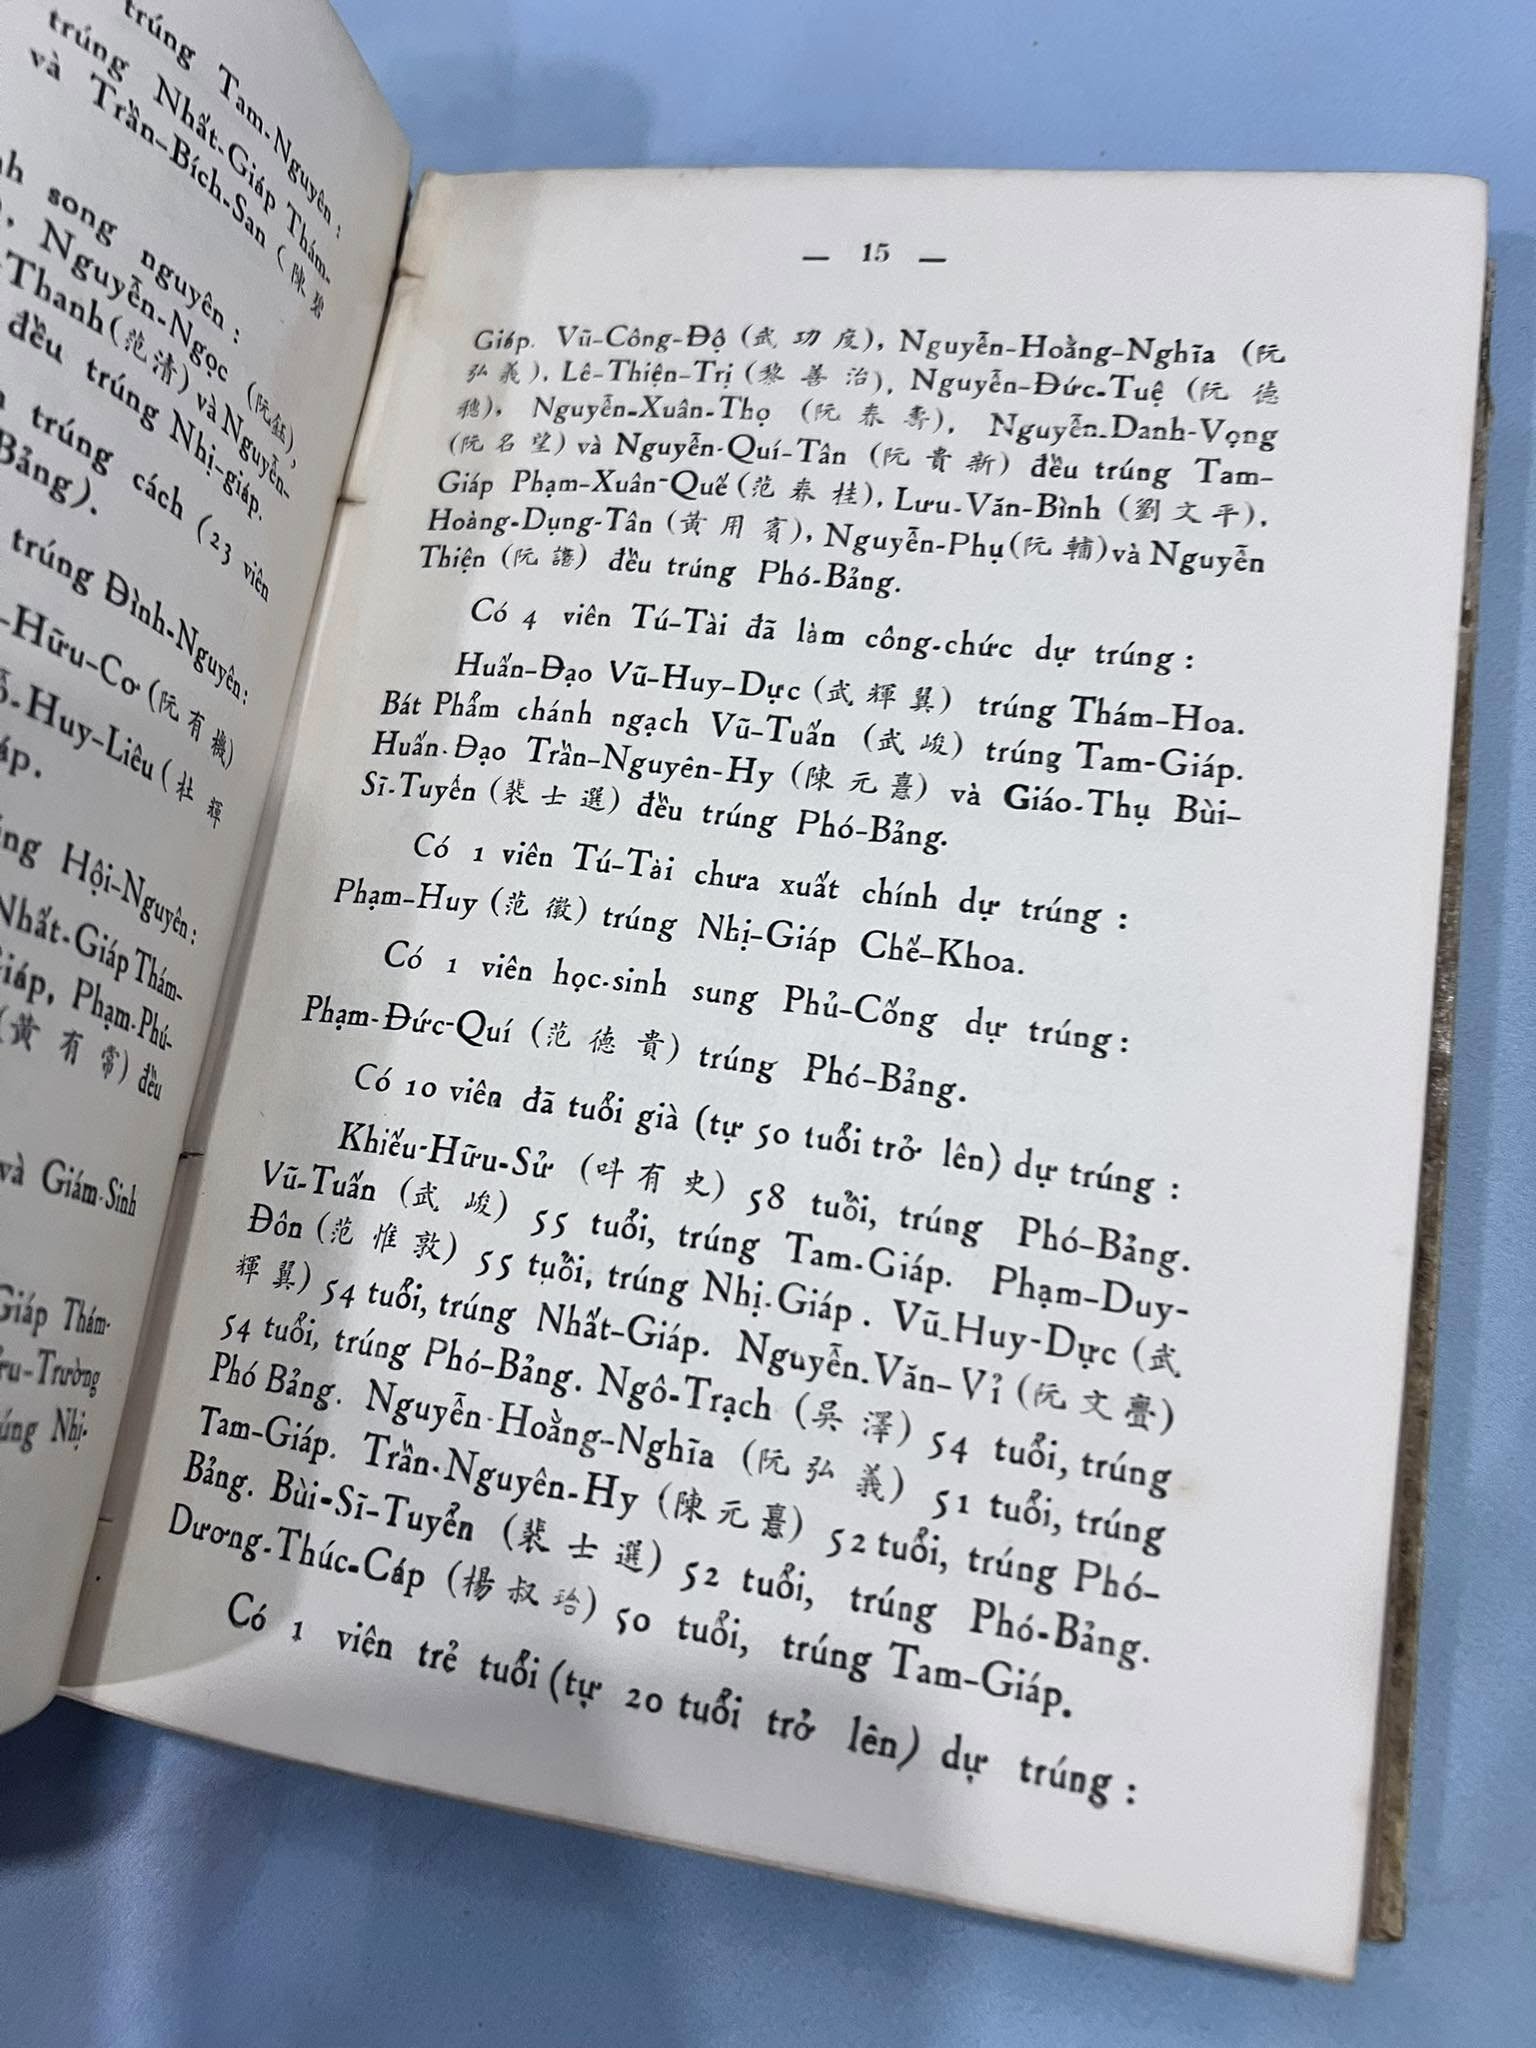 trúng Tam-Nguyên :
trúng Nhất-Giáp Thám-
và Trần-Bích-San ( 陳 碧
nh song nguyên :
Nguyễn-Ngọc (阮鈺),
-Thanh (范清) và Nguyễn-
đều trúng Nhị-giáp.
trúng cách (23 viên
Bảng).
trúng Đình-Nguyên:
-Hữu-Cơ (阮有機)
-Huy-Liêu ( 杜 輝
áp.
ng Hội-Nguyên:
Nhất-Giáp Thám-
Giáp, Phạm-Phú-
(黃 有 常) đều
và Giám-Sinh
Giáp Thám-
ru-Trường
úng Nhị-
— 15 —
Giáp. Vũ-Công-Độ (武 功 度), Nguyễn-Hoằng-Nghĩa (阮
弘 義), Lê-Thiện-Trị (黎 善 治), Nguyễn-Đức-Tuệ (阮 德
穗), Nguyễn-Xuân-Thọ (阮 春 壽), Nguyễn-Danh-Vọng
(阮 名 望) và Nguyễn-Quí-Tân (阮 貴 新) đều trúng Tam-
Giáp Phạm-Xuân-Quế (范 春 桂), Lưu-Văn-Bình (劉 文 平),
Hoàng-Dụng-Tân (黃 用 賓), Nguyễn-Phụ (阮 輔) và Nguyễn
Thiện (阮 譱) đều trúng Phó-Bảng.
Có 4 viên Tú-Tài đã làm công-chức dự trúng :
Huấn-Đạo Vũ-Huy-Dực (武 輝 翼) trúng Thám-Hoa.
Bát Phẩm chánh ngạch Vũ-Tuấn (武 峻) trúng Tam-Giáp.
Huấn-Đạo Trần-Nguyên-Hy (陳 元 憙) và Giáo-Thụ Bùi-
Sĩ-Tuyển (裴 士 選) đều trúng Phó-Bảng.
Có 1 viên Tú-Tài chưa xuất chính dự trúng :
Phạm-Huy (范 徽) trúng Nhị-Giáp Chế-Khoa.
Có 1 viên học-sinh sung Phủ-Cống dự trúng :
Phạm-Đức-Quí (范 德 貴) trúng Phó-Bảng.
Có 10 viên đã tuổi già (tự 50 tuổi trở lên) dự trúng :
Khiếu-Hữu-Sử (呌 有 史) 58 tuổi, trúng Phó-Bảng.
Vũ-Tuấn (武 峻) 55 tuổi, trúng Tam-Giáp. Phạm-Duy-
Đôn (范 惟 敦) 55 tuổi, trúng Nhị-Giáp. Vũ-Huy-Dực (武
輝 翼) 54 tuổi, trúng Nhất-Giáp. Nguyễn-Văn-Vỉ (阮 文 亹)
54 tuổi, trúng Phó-Bảng. Ngô-Trạch (吳 澤) 54 tuổi, trúng
Phó Bảng. Nguyễn-Hoằng-Nghĩa (阮 弘 義) 51 tuổi, trúng
Tam-Giáp. Trần-Nguyên-Hy (陳 元 憙) 52 tuổi, trúng Phó-
Bảng. Bùi-Sĩ-Tuyển (裴 士 選) 52 tuổi, trúng Phó-Bảng.
Dương-Thúc-Cáp (楊 叔 珨) 50 tuổi, trúng Tam-Giáp.
Có 1 viên trẻ tuổi (tự 20 tuổi trở lên) dự trúng :